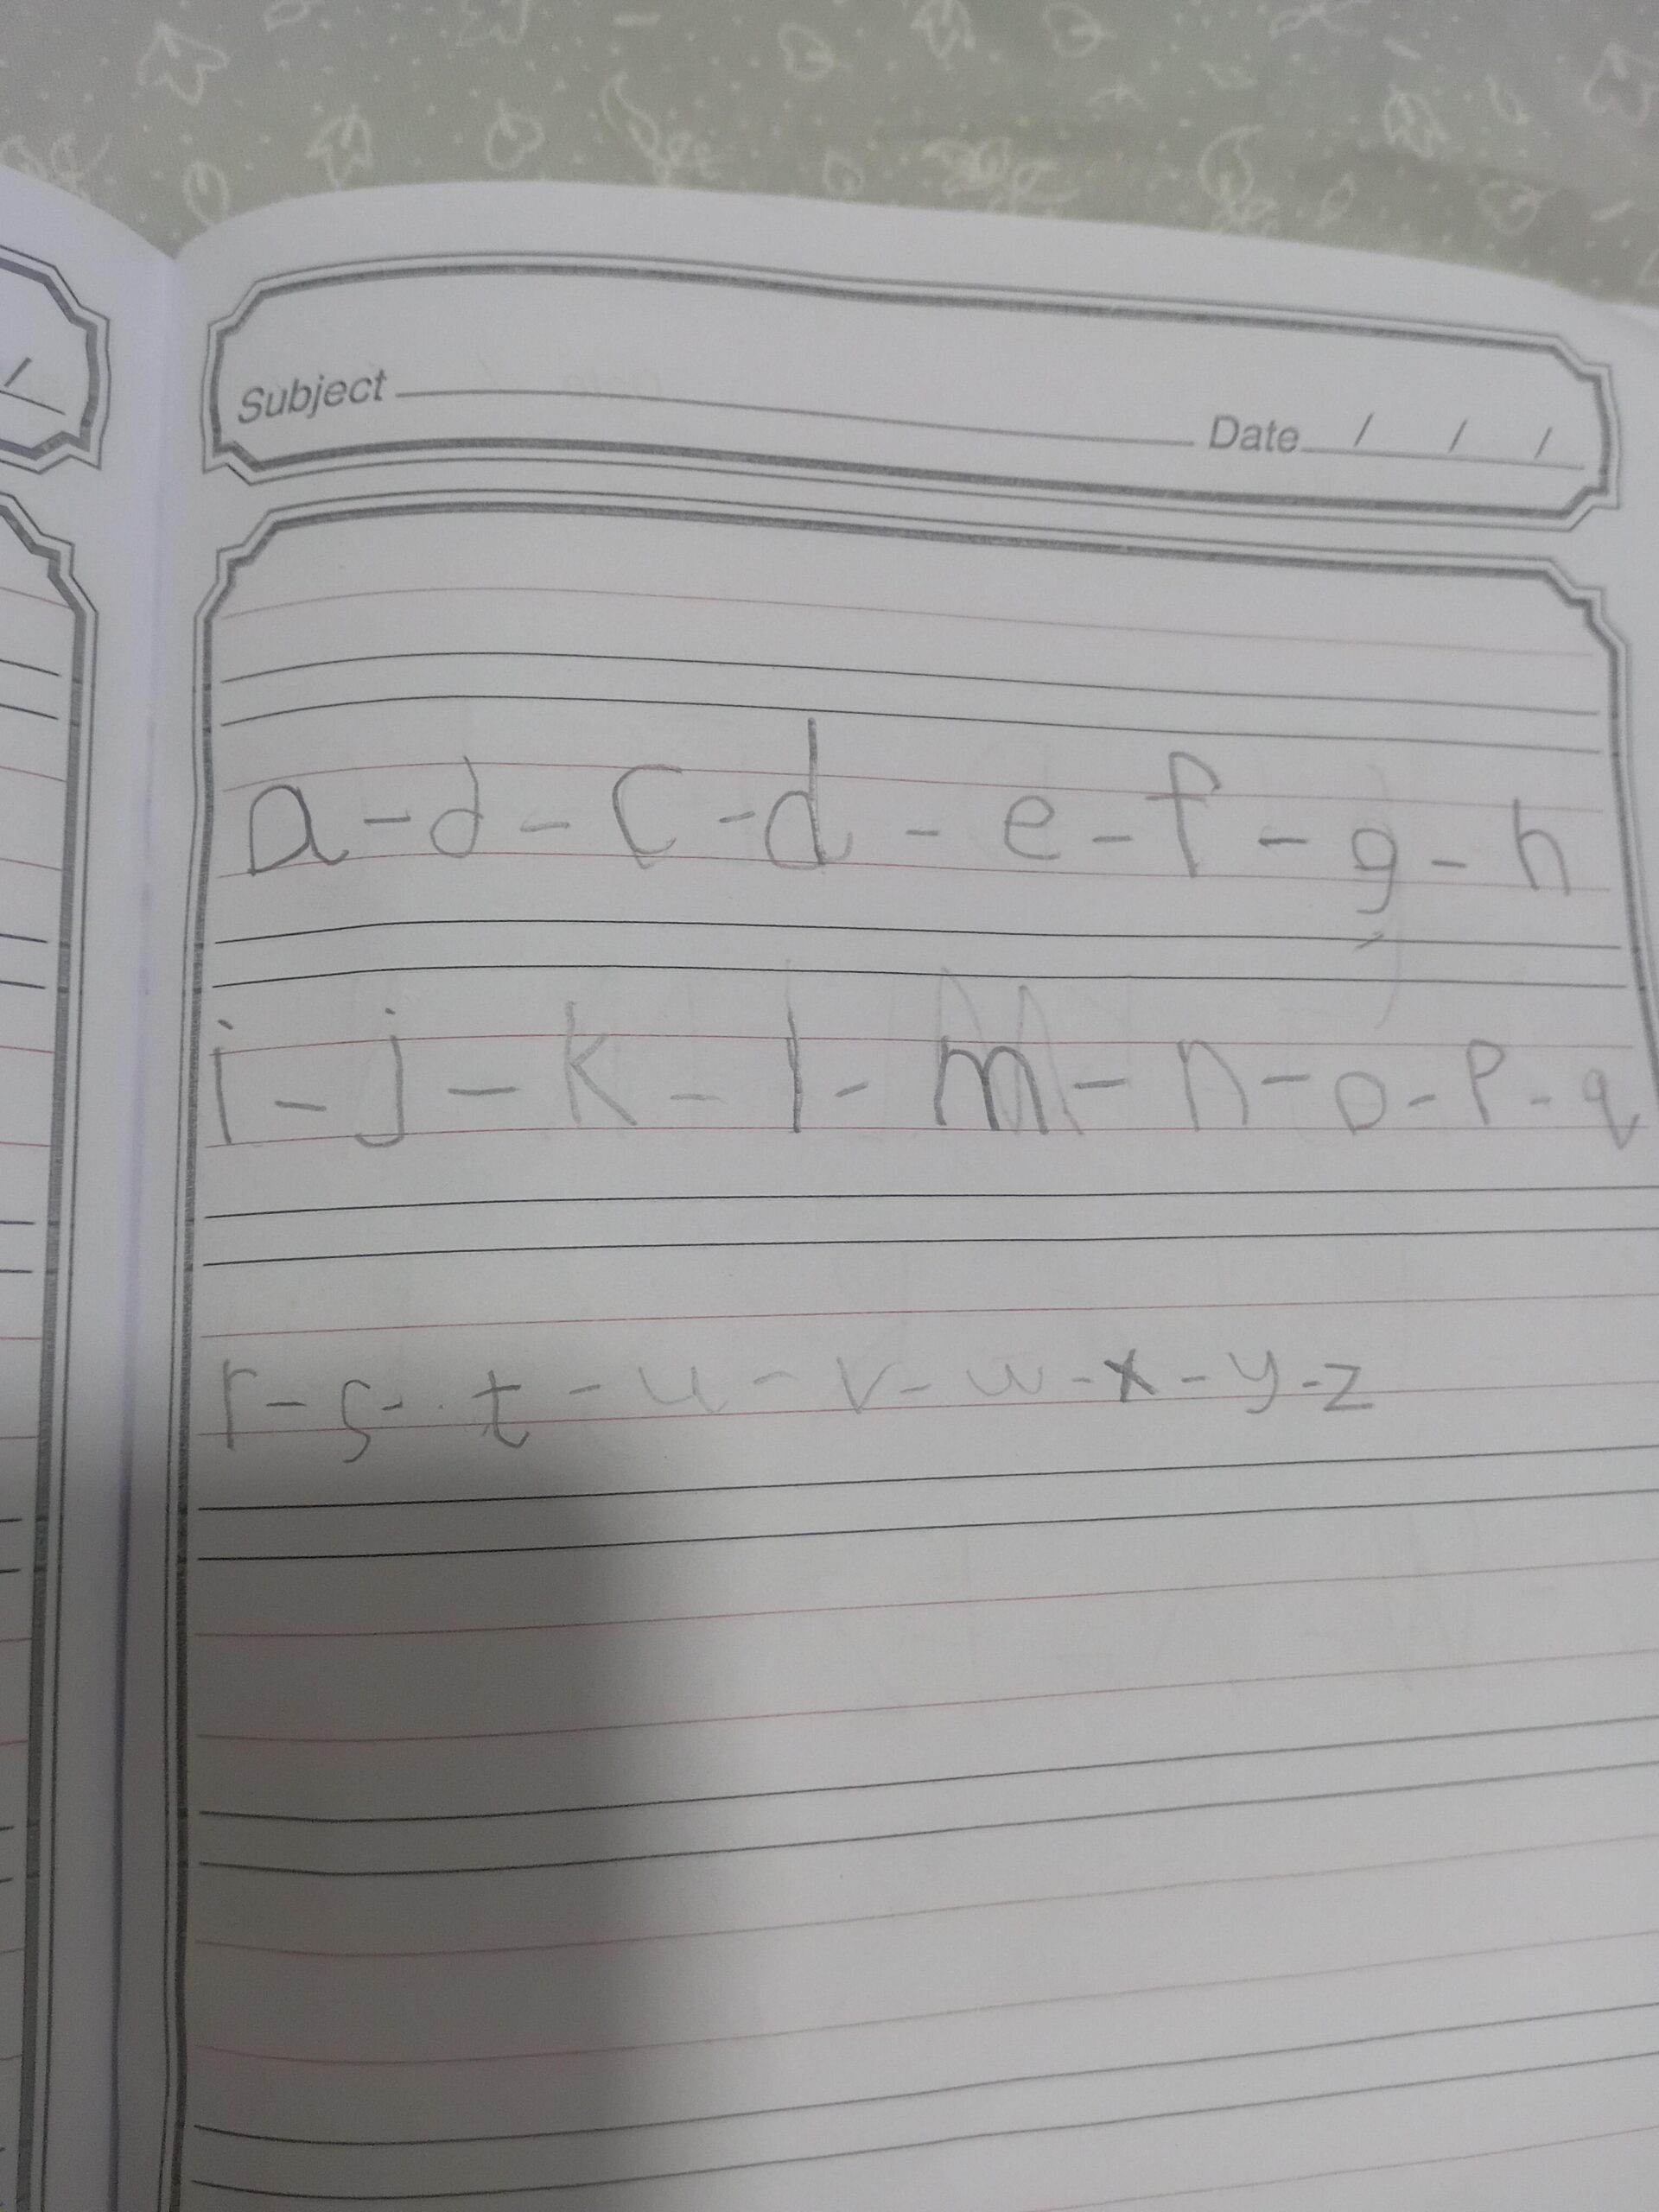 Subject Date / / /
a - d - c - d - e - f - g - h
i - j - k - l - m - n - o - p - q
r - s - t - u - v - w - x - y - z